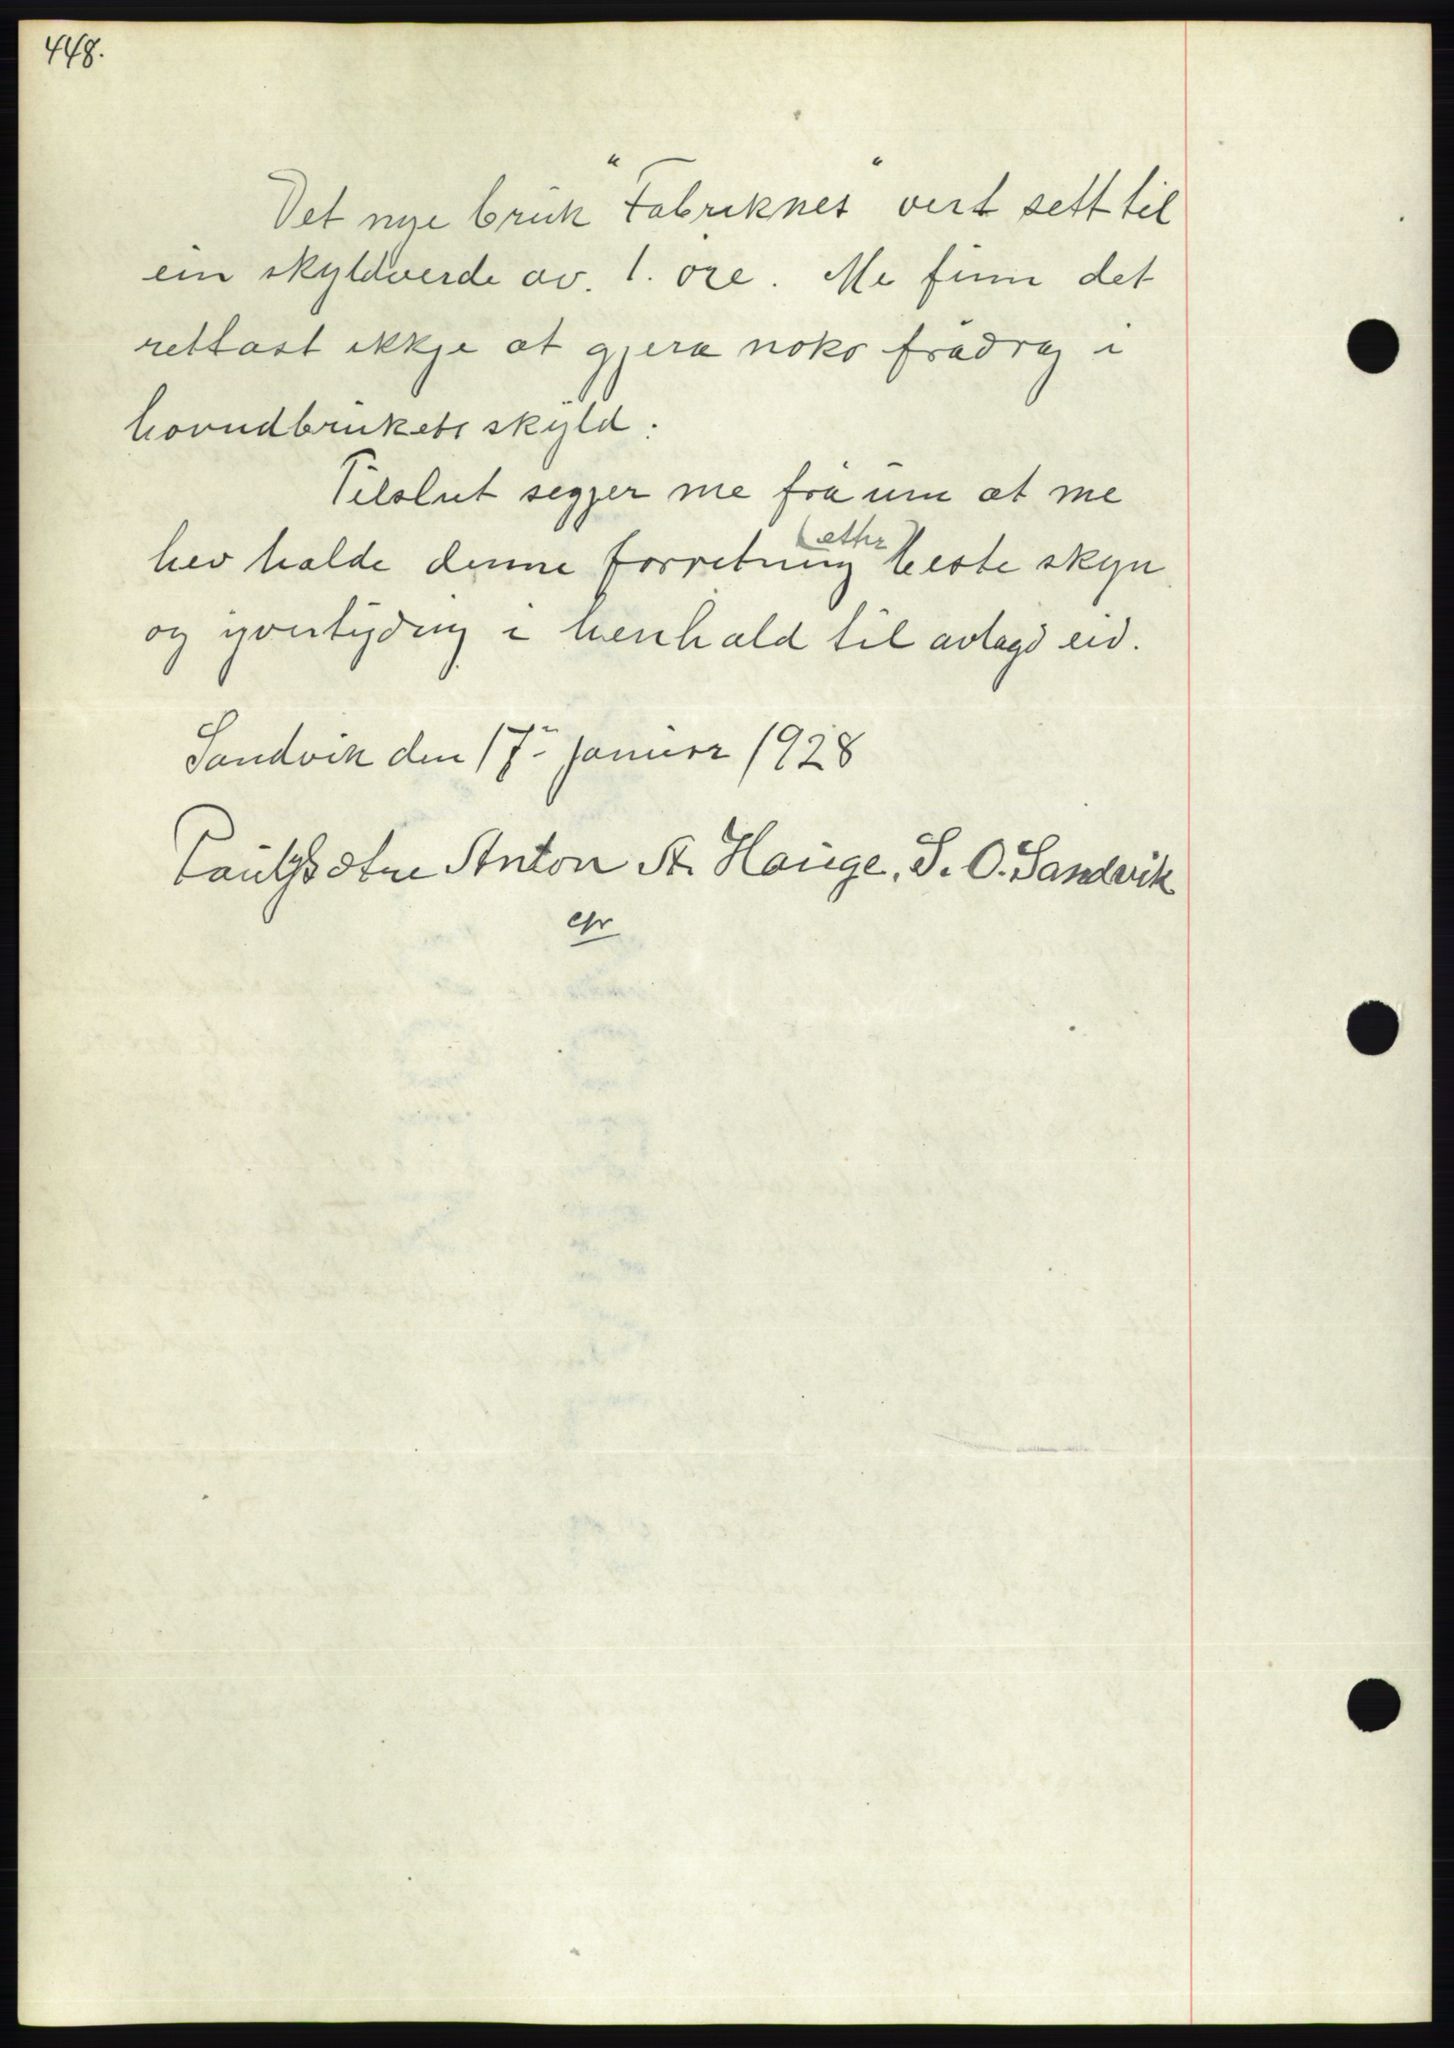 448.
Det nye bruk "Fabriknes" vert sett til
ein skyldverde av. 1. øre. Me finn det
rettast ikkje at gjera noko frådrag i
hovudbrukets skyld.
Tilslut segjer me frå um at me
hev halde denne forretning etter beste skyn
og yvertyding i henhald til avlagd eid.
Sandvik den 17- januar 1928
Anton St. Hauge. S. O. Sandvik